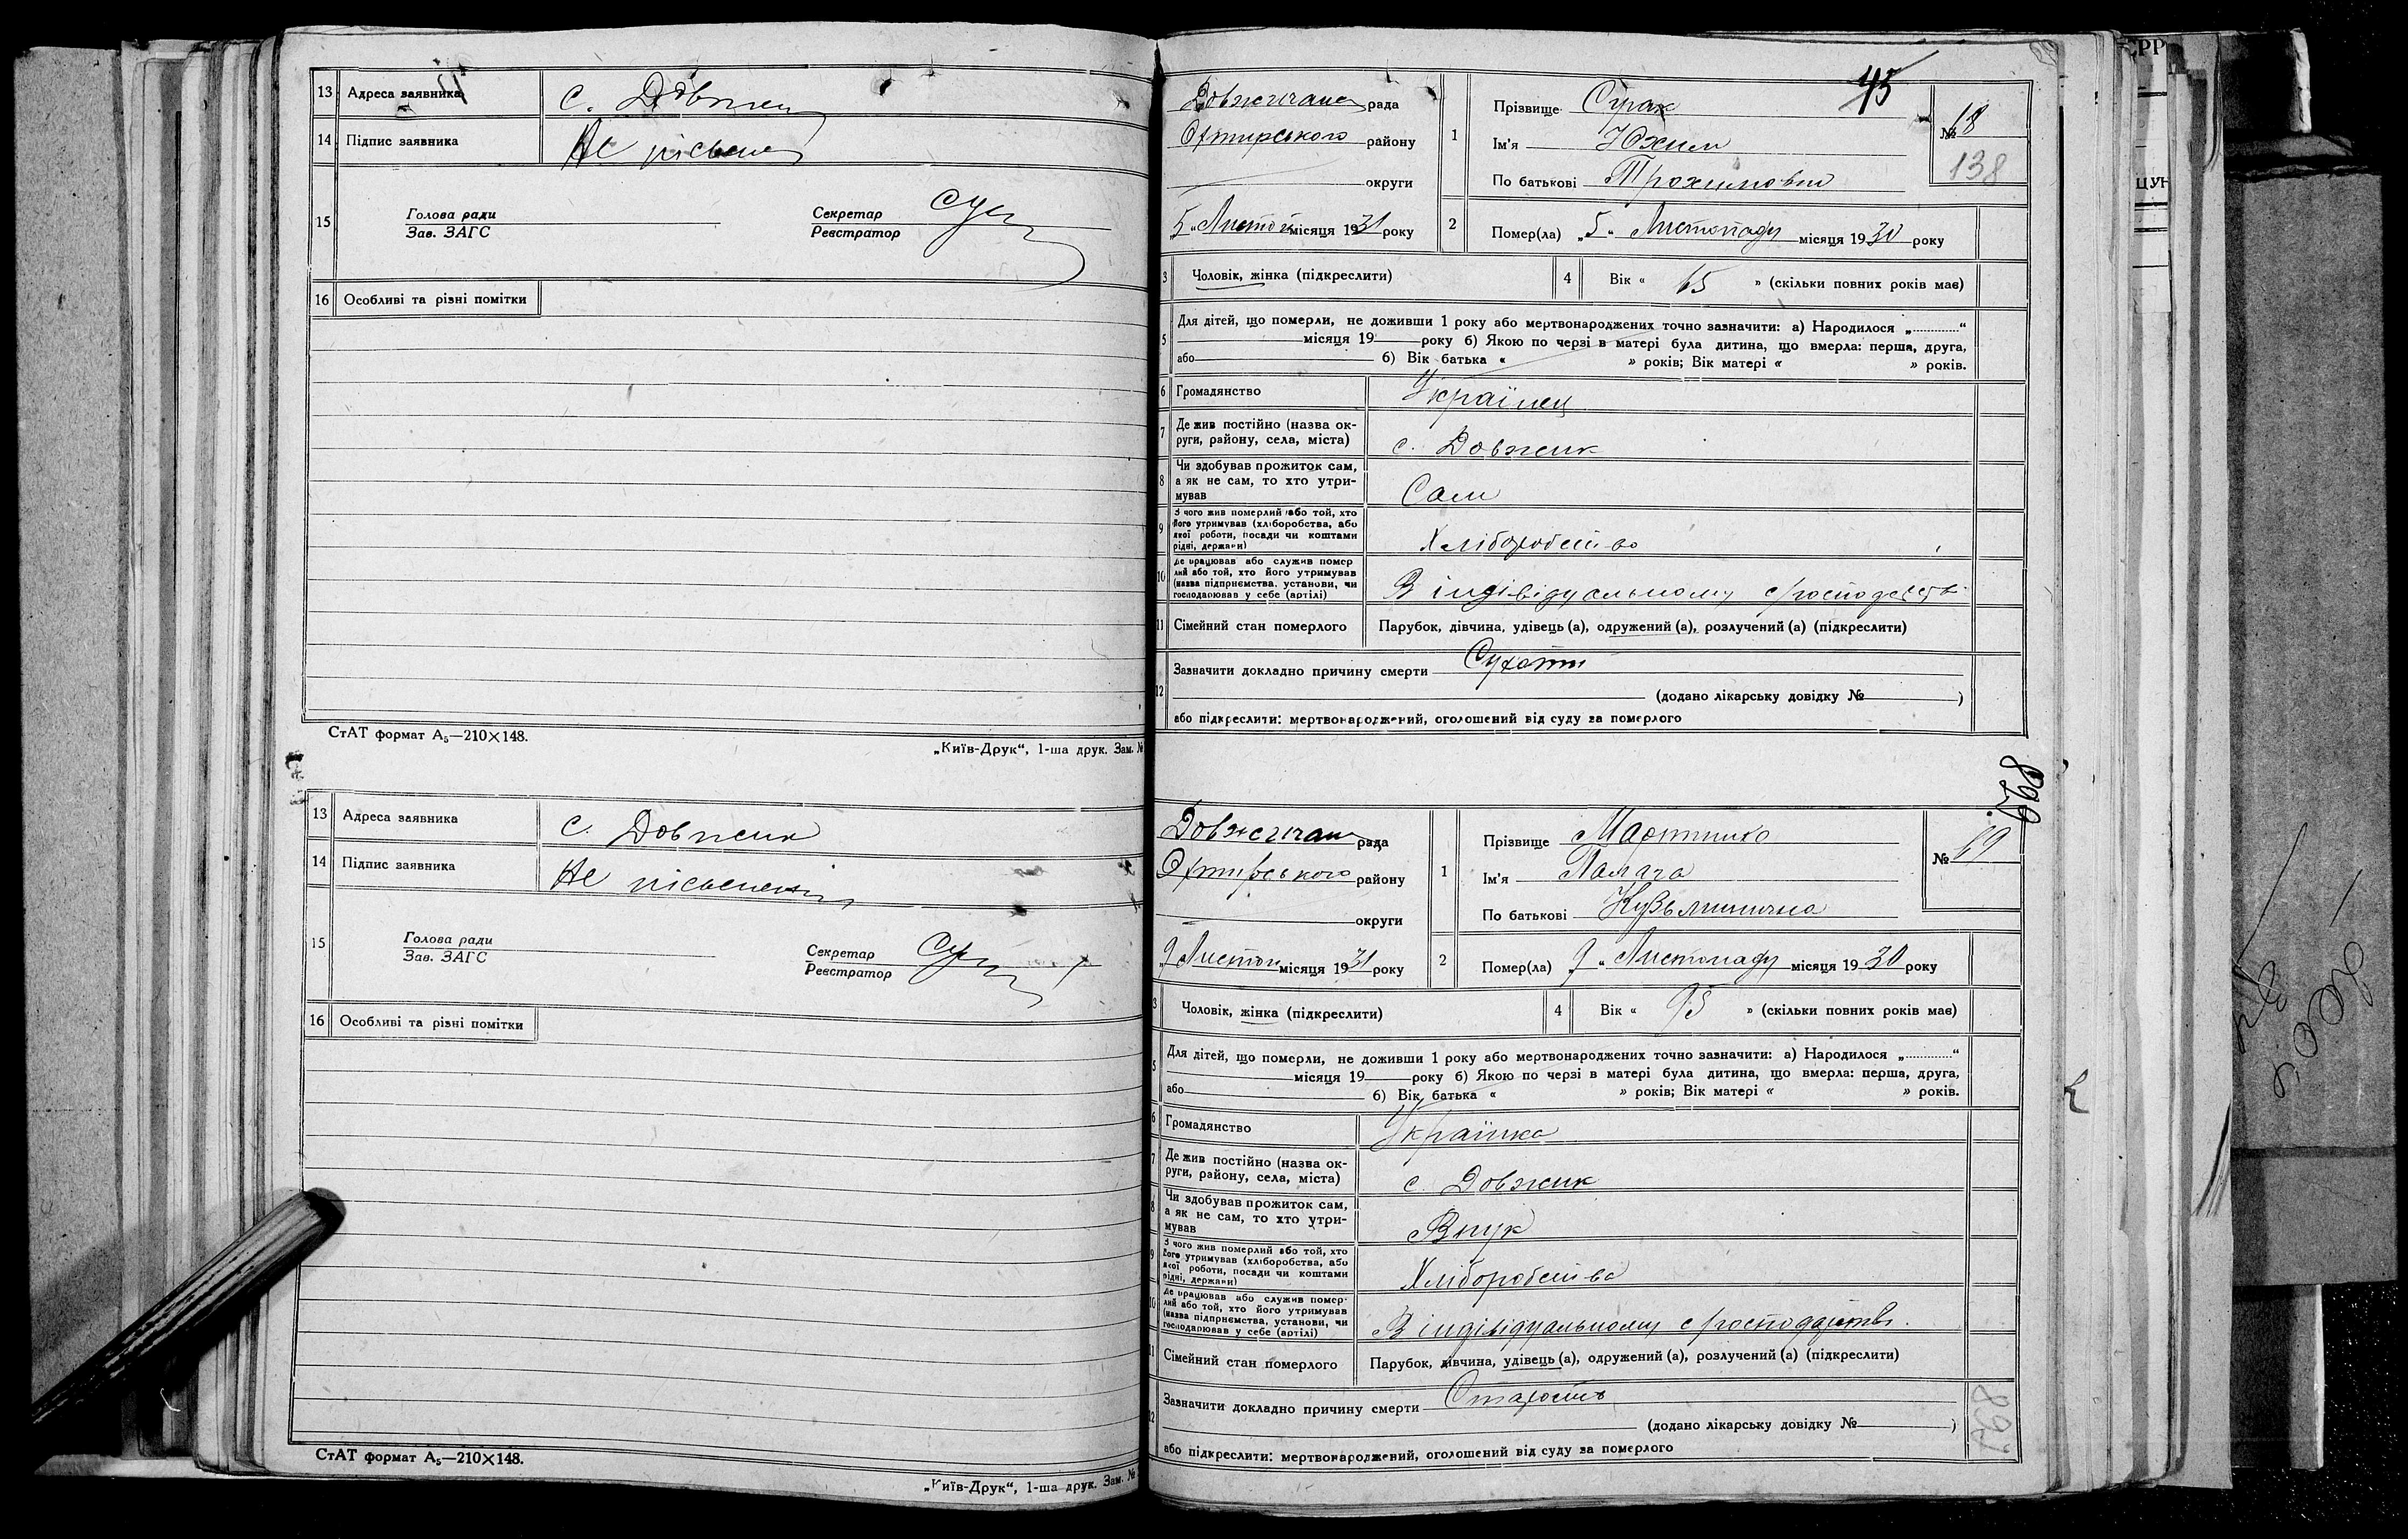 13 Адреса заявника с. Довжик
14 Підпис заявника Не письмен
15 Голова ради
Зав. ЗАГС
Секретар
Реєстратор
16 Особливі та різні помітки
СтАТ формат А₅—210×148.
„Київ-Друк“, 1-ша друк. Зам. №
13 Адреса заявника с. Довжик
14 Підпис заявника Не письменні
15 Голова ради
Зав. ЗАГС
Секретар
Реєстратор
16 Особливі та різні помітки
СтАТ формат А₅—210×148.
„Київ-Друк“, 1-ша друк. Зам. №
45
Довжичан рада
Охтирського району
округи
„5“ Листоп місяця 1931 року
1 Прізвище
Ім'я Юхим
По батькові Трохимович
№ 18
138
2 Помер(ла) „5“ Листопаду місяця 1930 року
3 Чоловік, жінка (підкреслити)
4 Вік « 65 » (скільки повних років має)
5 Для дітей, що померли, не доживши 1 року або мертвонароджених точно зазначити: а) Народилося „............“
місяця 19 року б) Якою по черзі в матері була дитина, що вмерла: перша, друга,
або б) Вік батька « » років; Вік матері « » років.
6 Громадянство Українец
7 Де жив постійно (назва ок-
руги, району, села, міста) с. Довжик
8 Чи здобував прожиток сам,
а як не сам, то хто утри-
мував Сам
9 З чого жив померлий або той, хто
його утримував (хліборобства, або
якої роботи, посади чи коштами
рідні, держави) Хліборобство
10 Де працював або служив помер
лий або той, хто його утримував
(назва підприємства, установи, чи
господарював у себе (артілі) В індівідуальному с/господарств
11 Сімейний стан померлого Парубок, дівчина, удівець (а), одружений (а), розлучений (а) (підкреслити)
12 Зазначити докладно причину смерти Сухоти
(додано лікарську довідку № )
або підкреслити: мертвонароджений, оголошений від суду за померлого
897
Довжичан рада
Охтирського району
округи
„9 Листоп місяця 1931 року
1 Прізвище
Ім'я
По батькові Кузьминична
№ 19
2 Помер(ла) „9“ Листопаду місяця 1930 року
3 Чоловік, жінка (підкреслити)
4 Вік « 95 » (скільки повних років має)
5 Для дітей, що померли, не доживши 1 року або мертвонароджених точно зазначити: а) Народилося „............“
місяця 19 року б) Якою по черзі в матері була дитина, що вмерла: перша, друга,
або б) Вік батька « » років; Вік матері « » років.
6 Громадянство Українка
7 Де жив постійно (назва ок-
руги, району, села, міста) с. Довжик
8 Чи здобував прожиток сам,
а як не сам, то хто утри-
мував Внук
9 З чого жив померлий або той, хто
його утримував (хліборобства, або
якої роботи, посади чи коштами
рідні, держави) Хліборобства
10 Де працював або служив помер-
лий або той, хто його утримував
(назва підприємства, установи, чи
господарював у себе (артілі) В індівідуальному с/господарстві.
11 Сімейний стан померлого Парубок, дівчина, удівець (а), одружений (а), розлучений (а) (підкреслити)
12 Зазначити докладно причину смерти Старость
(додано лікарську довідку № )
або підкреслити: мертвонароджений, оголошений від суду за померлого
897